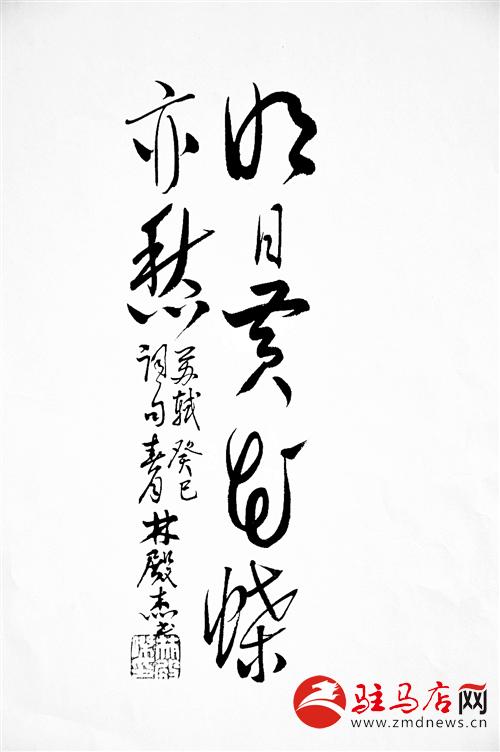 明日黄花蝶
亦愁
苏轼
词句
癸巳
春月
林殿杰书
驻马店网
www.zmdnews.cn